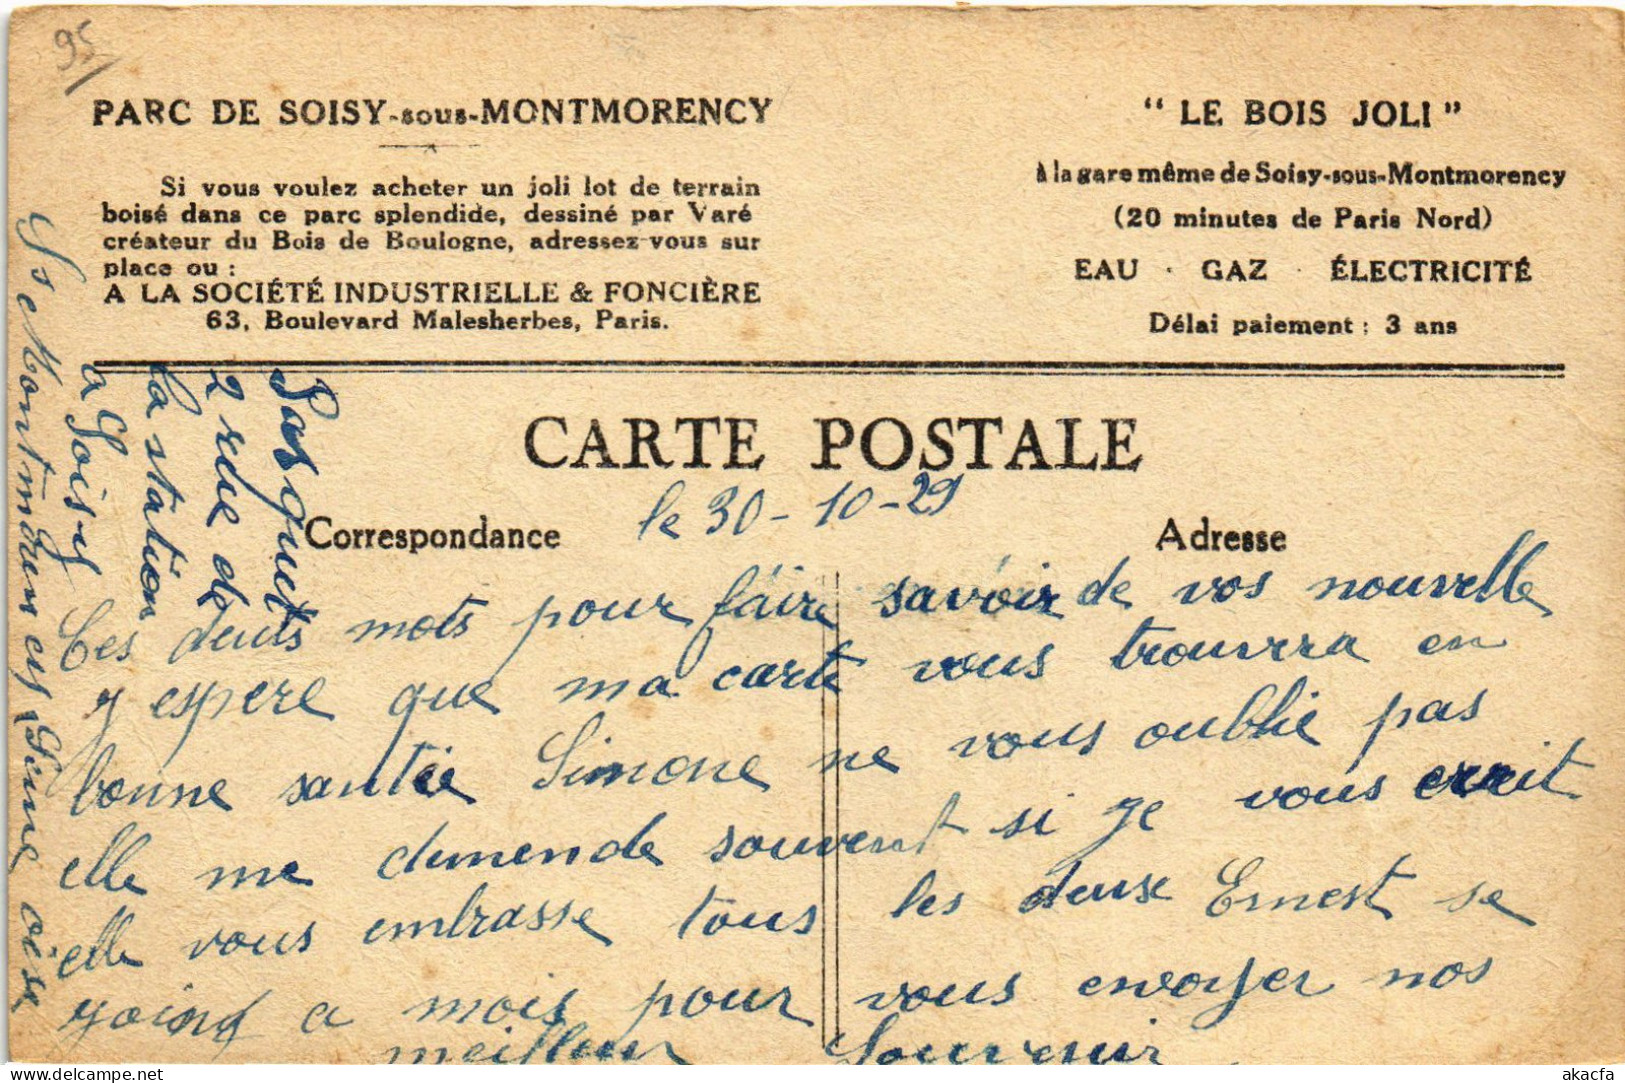 95
PARC DE SOISY-sous-MONTMORENCY
Si vous voulez acheter un joli lot de terrain
boisé dans ce parc splendide, dessiné par Varé
créateur du Bois de Boulogne, adressez-vous sur
place ou :
A LA SOCIÉTÉ INDUSTRIELLE & FONCIÈRE
63, Boulevard Malesherbes, Paris.
" LE BOIS JOLI "
à la gare même de Soisy-sous-Montmorency
(20 minutes de Paris Nord)
EAU · GAZ · ÉLECTRICITÉ
Délai paiement : 3 ans
CARTE POSTALE
Correspondance
Adresse
le 30-10-29
Ces deuts mots pour fáire savoir de vos nouvelle
y espere que ma carte vous trouvrra en
bonne santée Simone ne vous oublie pas
elle me demende souvent si je vous ecrit
elle vous embrasse tous les deux Ernest se
yoing a mois pour vous envoyer nos
meilleur Souvenir
Pasquet
2 rue de
la station
a Soisy
Ss Montmorency Seine oise
akacfa